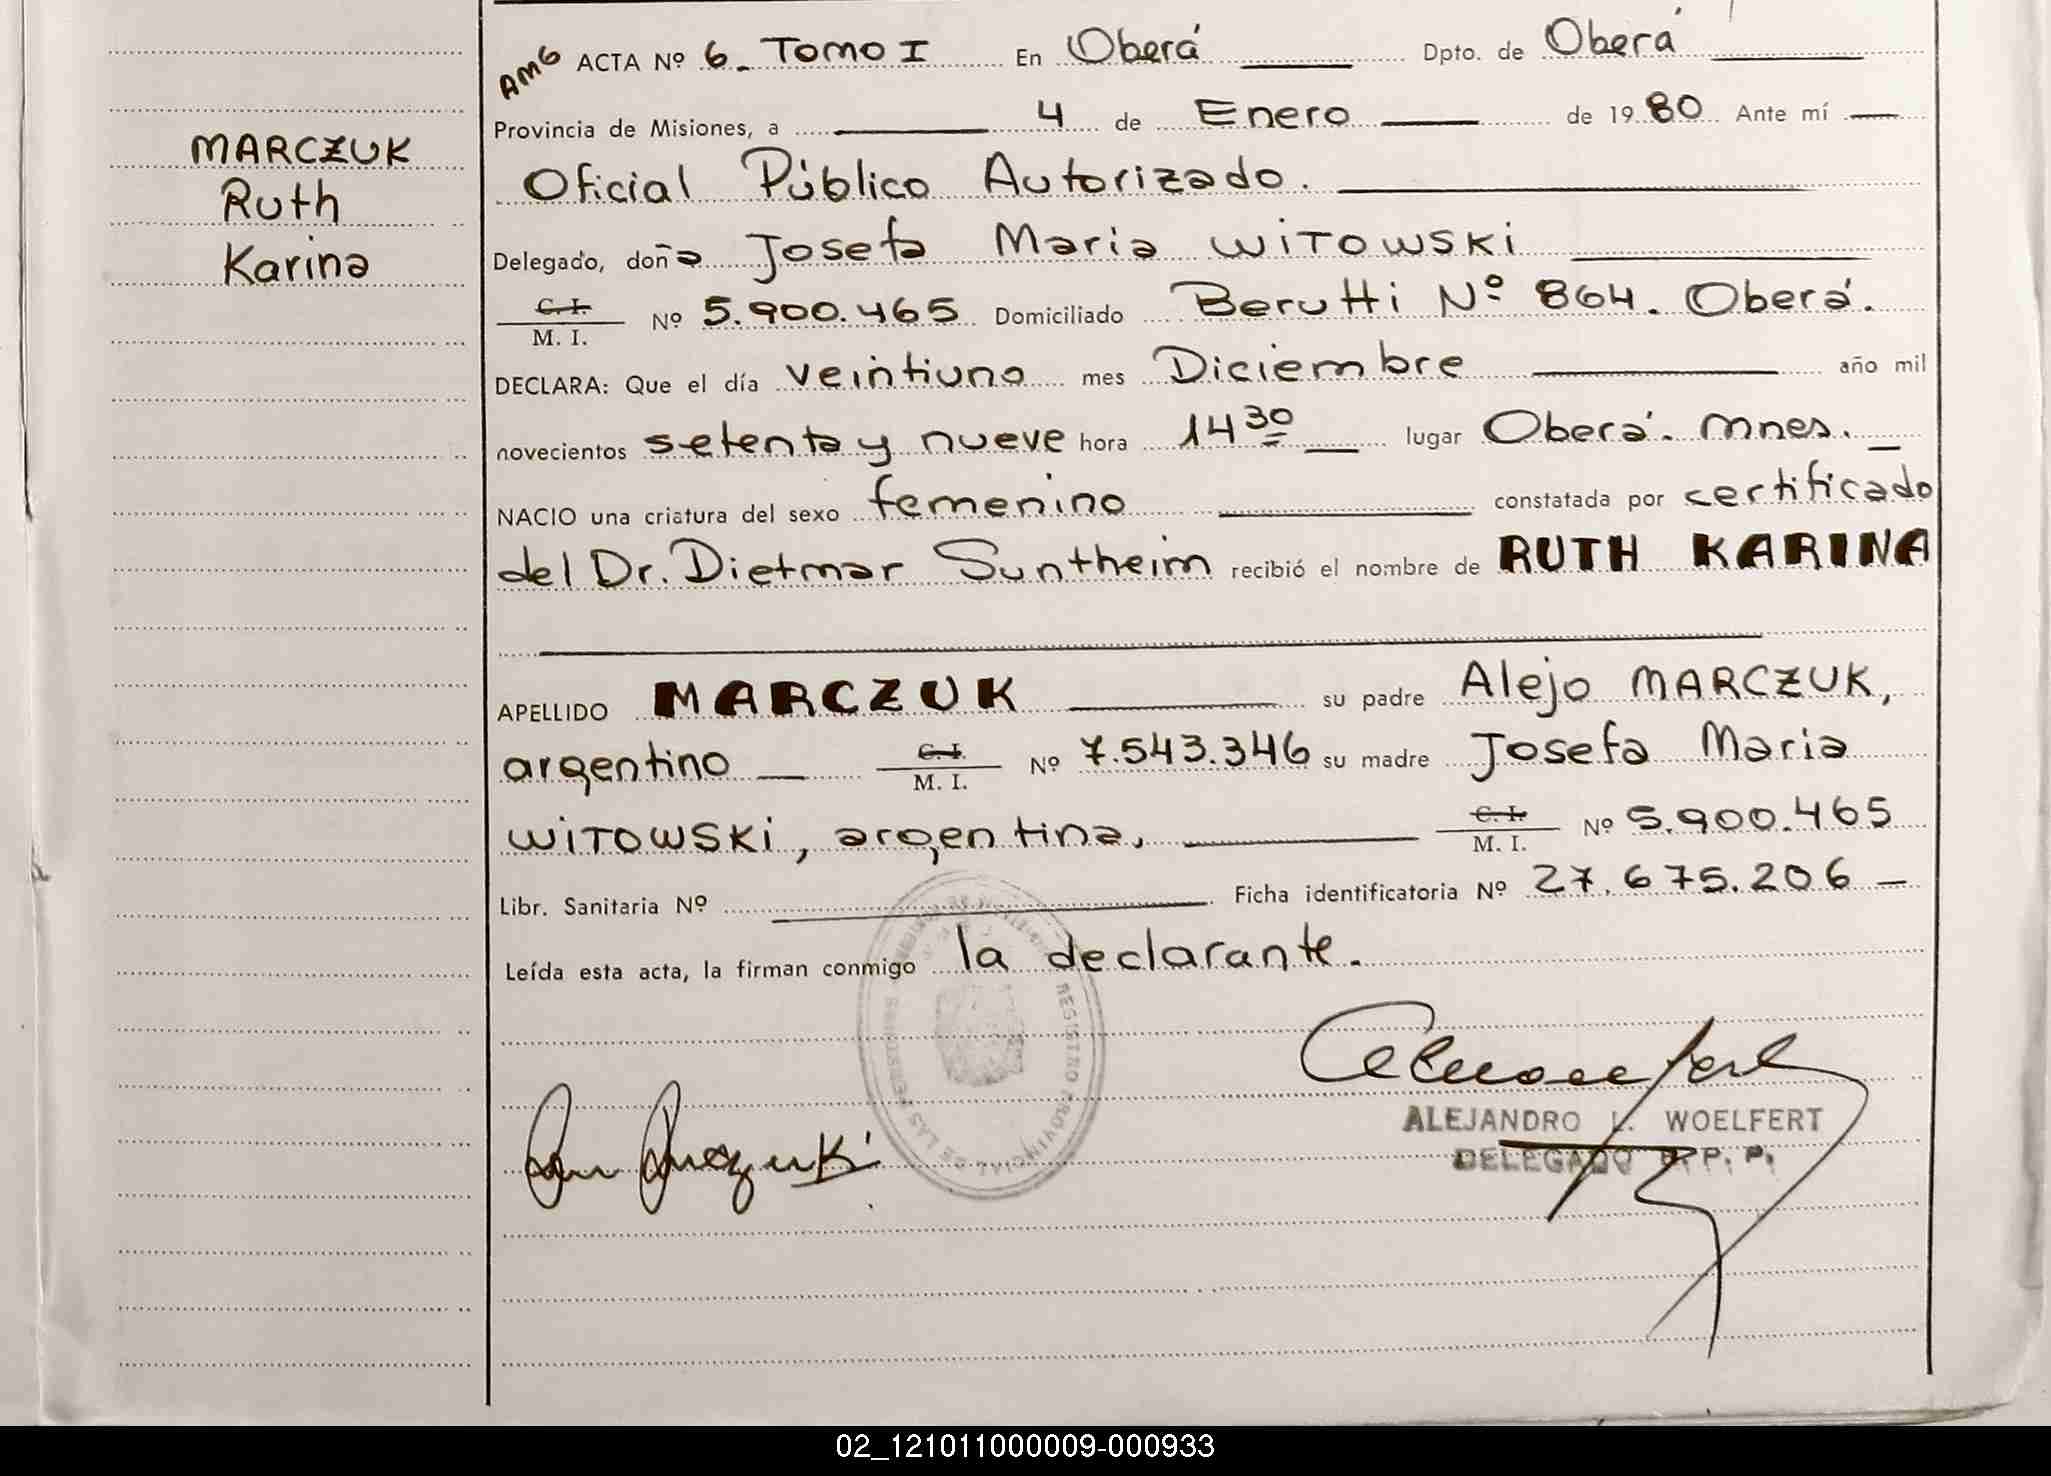 AMG ACTA Nº 6. Tomo I En Oberá Dpto. de Oberá
Provincia de Misiones, a 4 de Enero de 1980 Ante mí
MARCZUK
Ruth
Karina
Oficial Público Autorizado.
Delegado, doña Josefa Maria WITOWSKI
C. I.
M. I. Nº 5.900.465 Domiciliado Berutti Nº 864. Oberá.
DECLARA: Que el día veintiuno mes Diciembre año mil
novecientos setenta y nueve hora 14 30 lugar Oberá. Mnes.
NACIO una criatura del sexo femenino constatada por certificado
del Dr. Dietmar Suntheim recibió el nombre de RUTH KARINA
APELLIDO MARCZUK su padre Alejo MARCZUK,
argentino C. I. M. I. Nº 7.543.346 su madre Josefa Maria
WITOWSKI, argentina, C. I. M. I. Nº 5.900.465
Libr. Sanitaria Nº Ficha identificatoria Nº 27.675.206
Leída esta acta, la firman conmigo la declarante.
REGISTRO PROVINCIAL DE LAS PERSONAS
ALEJANDRO L. WOELFERT
DELEGADO R. P. P.
02_121011000009-000933